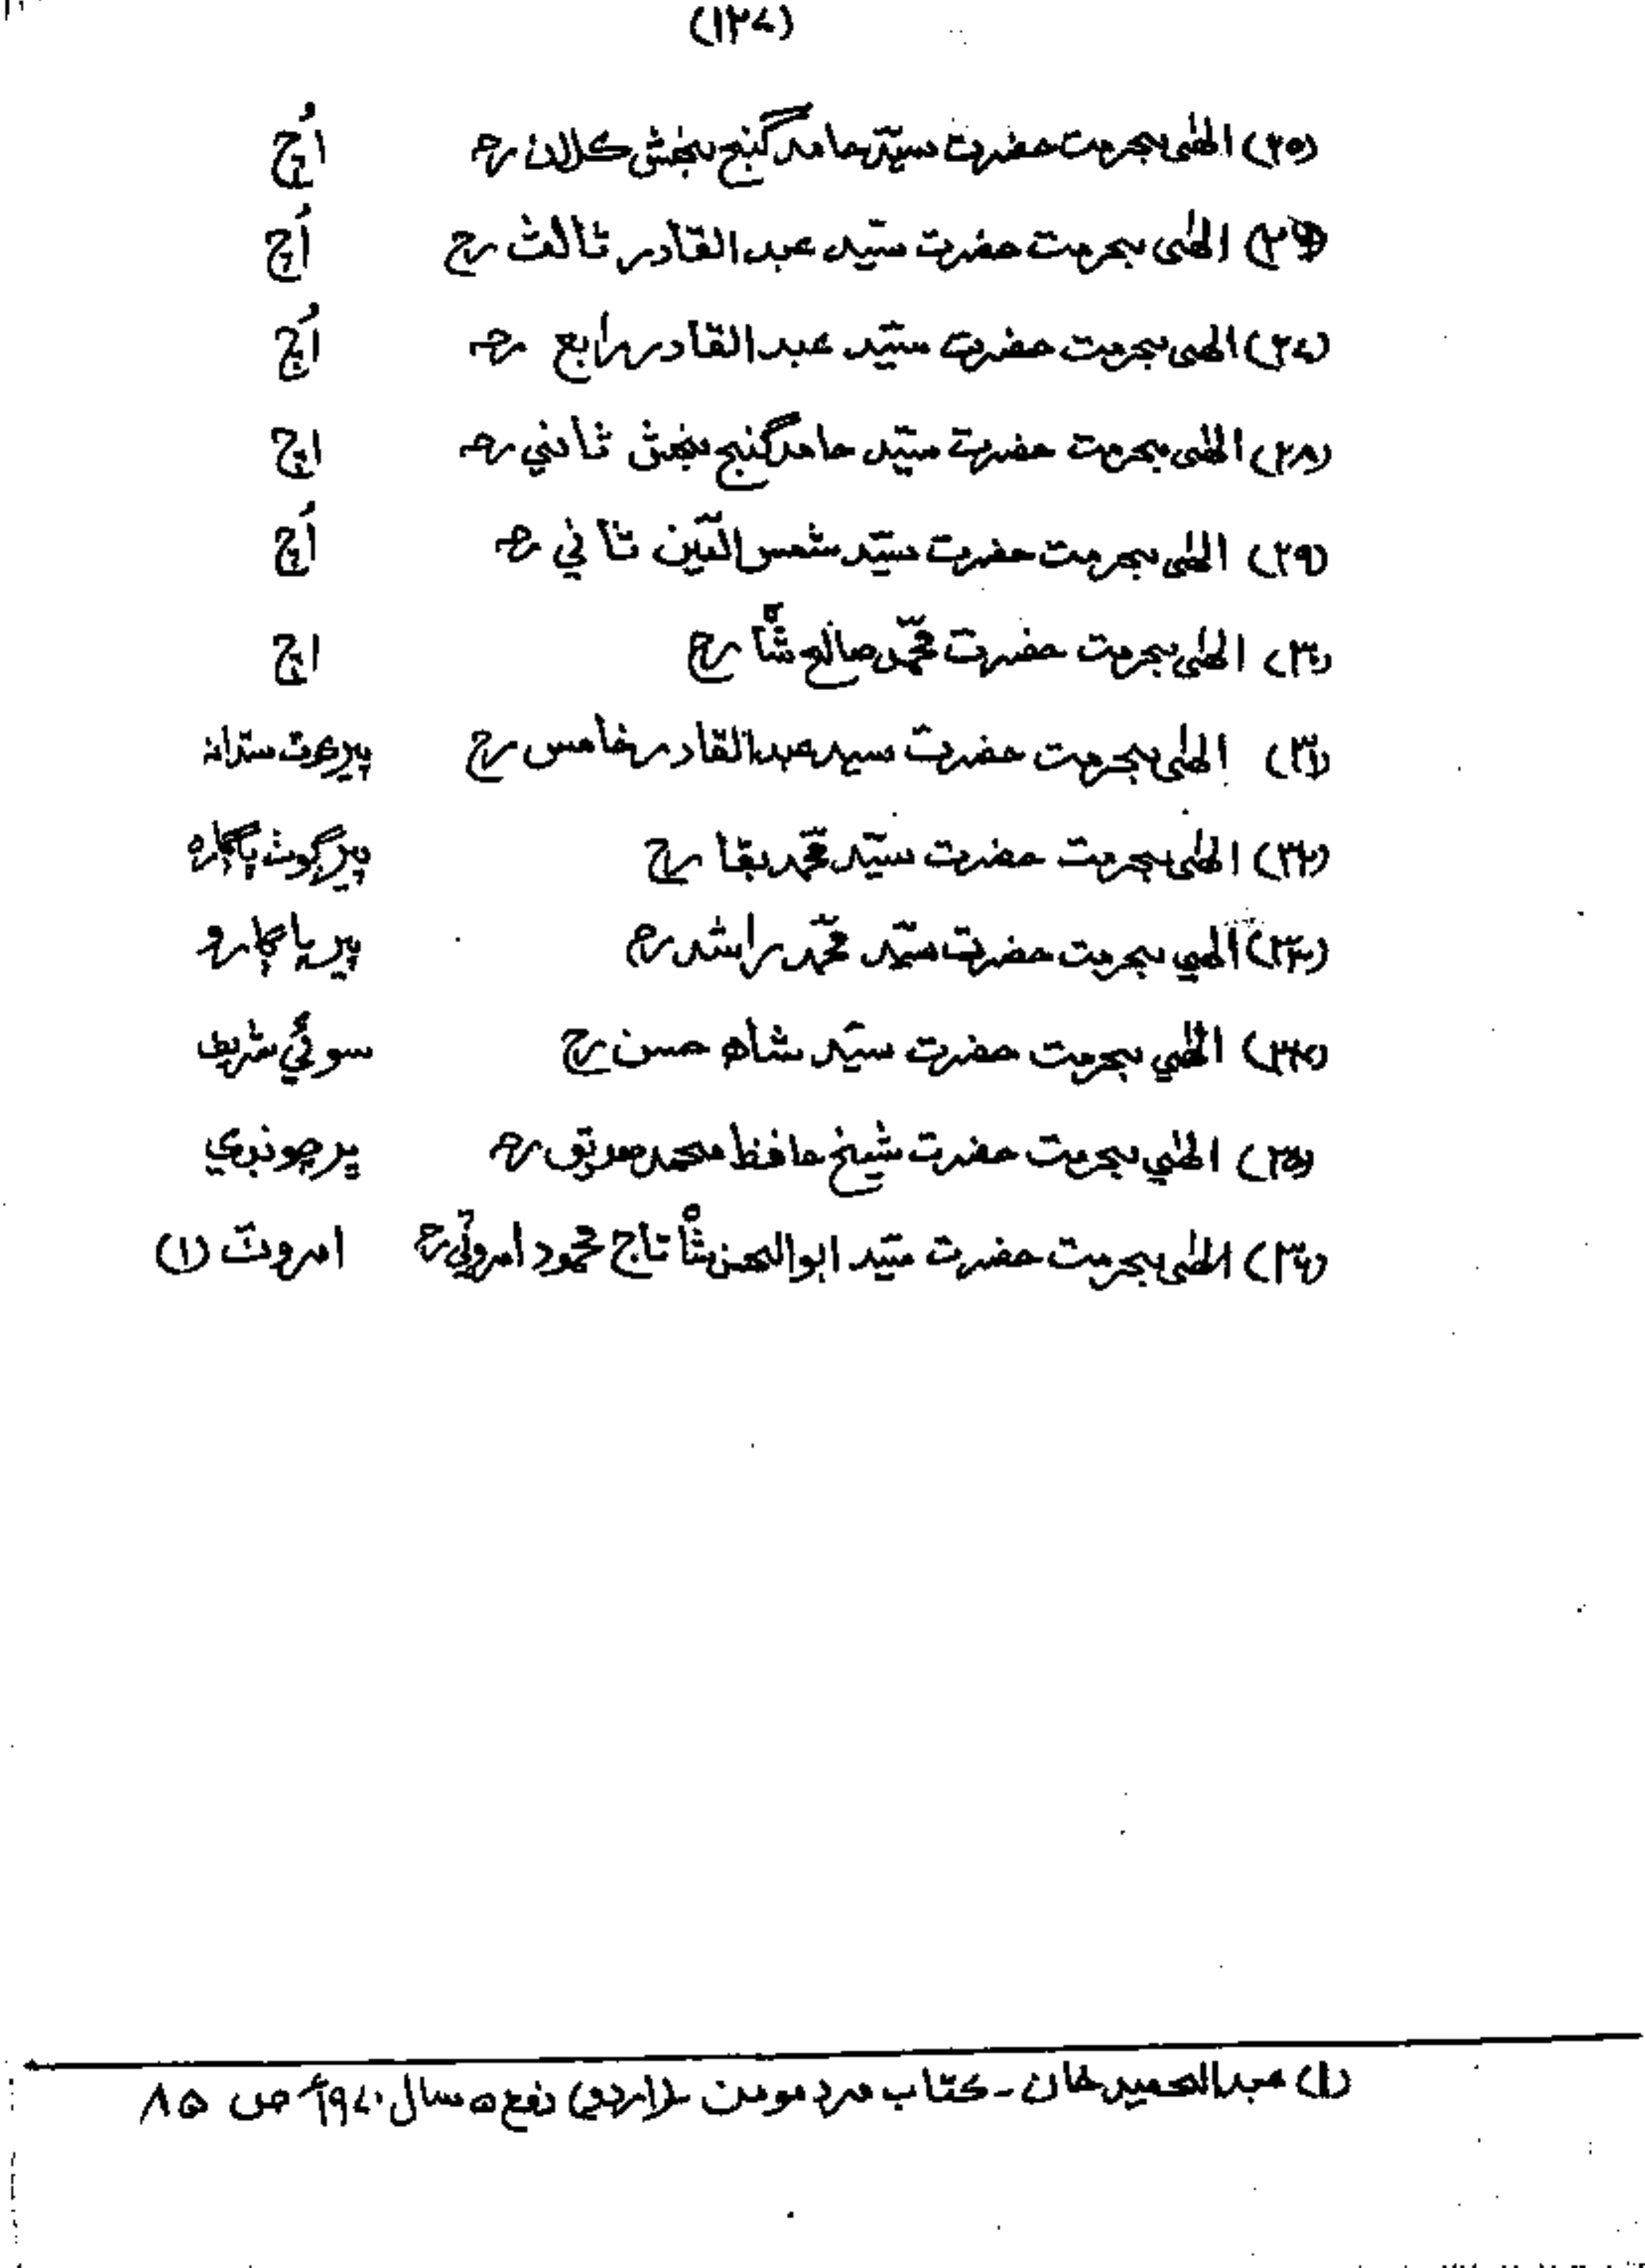 (۱۳۷)
(۲۵) الھٰی بحرمت حضرت سیّد حامد گنج بخش کلان رحہ اُچ
(۲۶) الھٰی بحرمت حضرت سیّد عبدالقادر ثالث رح اُچ
(۲۷) الھی بحرمت حضرت سیّد عبدالقادر رابع رحہ اُچ
(۲۸) الھٰی بحرمت حضرت سیّد حامد گنج بخش ثاني رحہ اچ
(۲۹) الھٰی بحرمت حضرت سیّد شمس الدّین ثاني رحہ اُچ
(۳۰) الھٰی بحرمت حضرت محمّد صالح شاہ رح اچ
(۳۱) الھٰی بحرمت حضرت سید عبدالقادر خامس رح پیر
(۳۲) الھٰی بحرمت حضرت سیّد محمّد بقا رح پیر گوٹ پاڳارہ
(۳۳) الھي بحرمت حضرت سیّد محمّد راشد رح پیر پاڳارو
(۳۴) الھٰي بحرمت حضرت سیّد شاھ حسن رح سوئي شریف
(۳۵) الھٰي بحرمت حضرت شیخ حافظ محمد صدیق رحہ ڀرچونڊي
(۳۶) الھٰی بحرمت حضرت سیّد ابوالحسن شاہ تاج محمود امروٽي رح امروٽ (۱)
(۱) عبدالحمید خان - کتاب مرد مومن (اردو) دفع ۵ سال ۱۹۷۰ع ص ۸۵